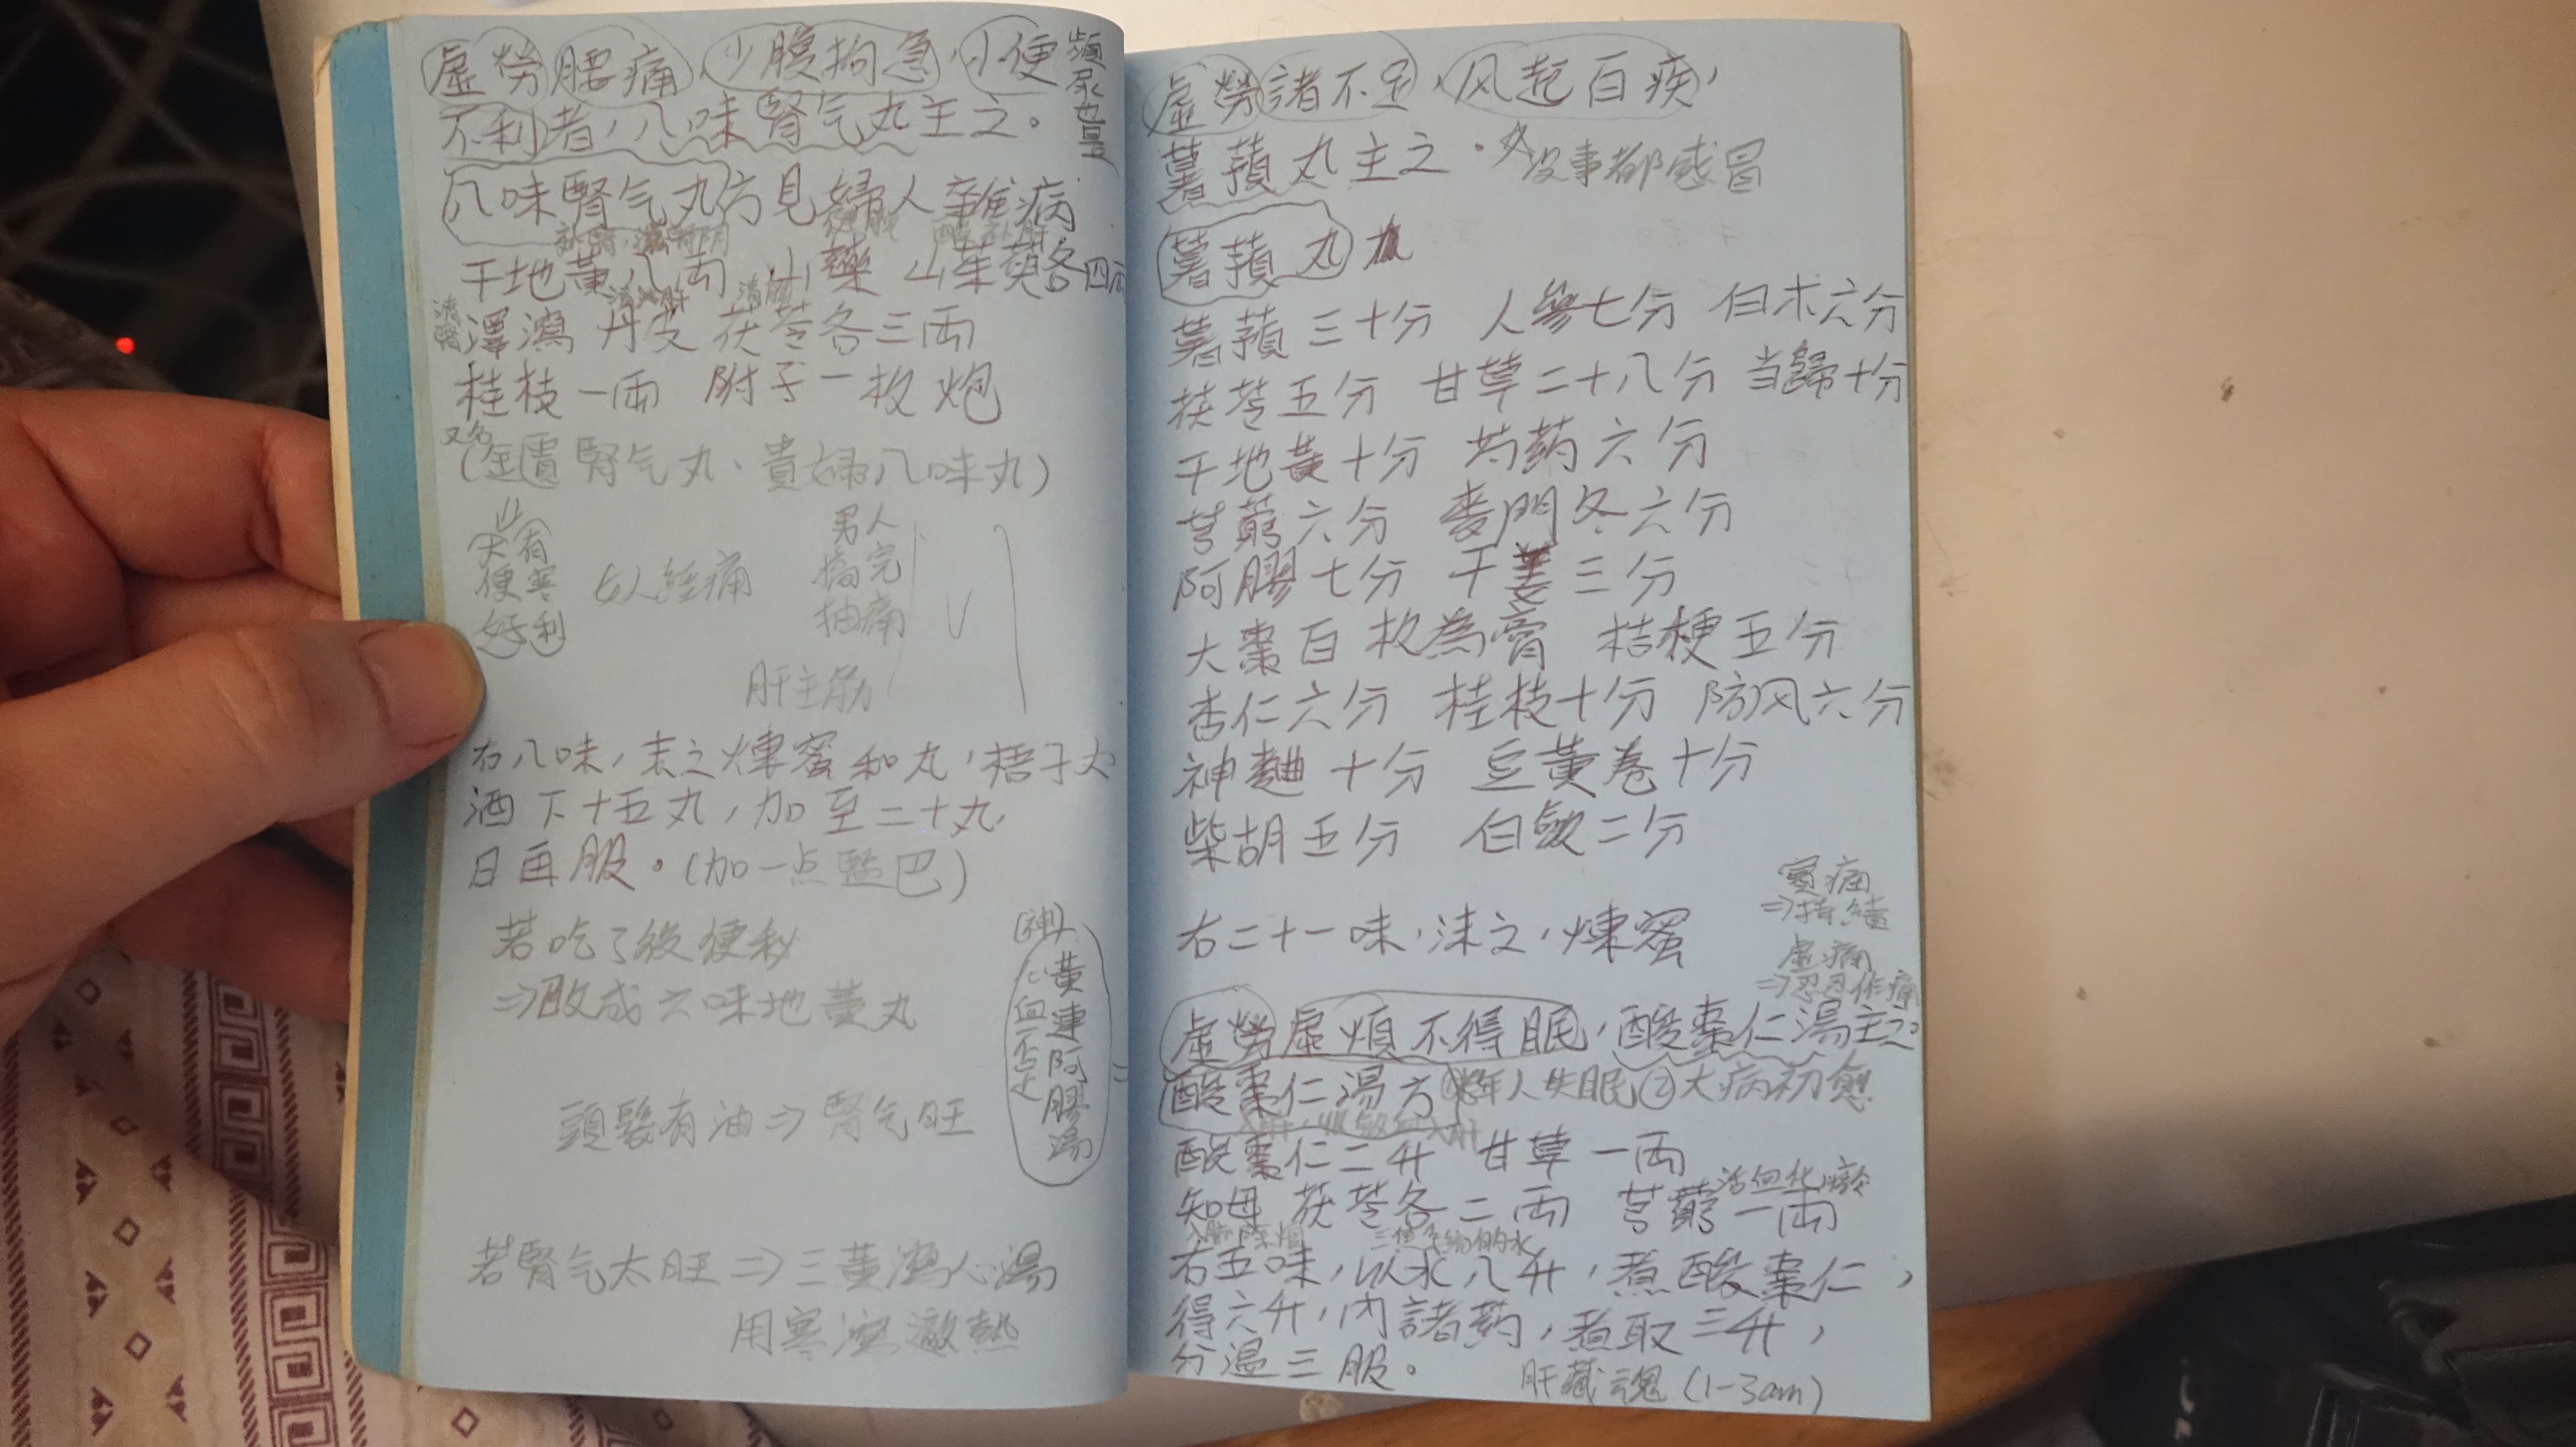 虛勞腰痛，少腹拘急，小便
頻尿也是
不利者，八味腎气丸主之。
八味腎气丸方見婦人雜病
干地黃八両 山藥 山茱萸各四両
清腎
澤瀉 丹皮 茯苓各三両
桂枝一両 附子一枚炮
又名
(金匱腎气丸、貴婦八味丸)
大便好
有寒利
女人經痛
男人
搞完
抽痛
肝主筋
右八味，末之煉蜜和丸，梧子大
酒下十五丸，加至二十丸，
日再服。(加一点盬巴)
若吃了後便秘
⇒改成六味地黃丸
(神)
心血不足
黃連阿膠湯
頭髮有油⇒腎气旺
若腎气太旺⇒三黃瀉心湯
用寒瀉激熱
虛勞諸不足，风起百疾，
薯蕷丸主之。
沒事都感冒
薯蕷丸
薯蕷三十分 人參七分 白朮六分
茯苓五分 甘草二十八分 当歸十分
干地黃十分 芍药六分
芎藭六分 麥門冬六分
阿膠七分 干姜三分
大棗百枚為膏 桔梗五分
杏仁六分 桂枝十分 防风六分
神麯十分 豆黃卷十分
柴胡五分 白斂二分
實痛
⇒持續
虛痛
⇒忍忍作痛
右二十一味，沫之，煉蜜
虛勞虛煩不得眠，酸棗仁湯主之。
酸棗仁湯方 ①老年人失眠②大病初愈
酸棗仁二升 甘草一両
活血化瘀
知母 茯苓各二両 芎藭一両
右五味，以水八升，煮酸棗仁，
得六升，內諸药，煮取三升，
分溫三服。
肝藏魂(1-3am)